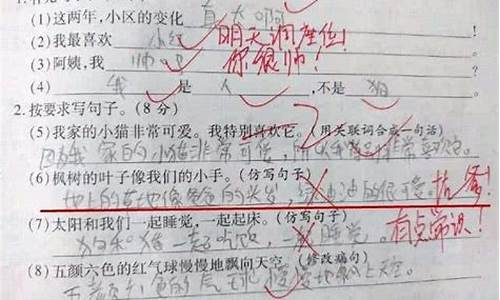 (1)这两年,小区的变化 真大啊
(2)我最喜欢 小红 明天调座位!
(3)阿姨,我 帅吧 你很帅!
(4) 我 是 人 ,不是 狗
2.按要求写句子。(8分)
(5)我家的小猫非常可爱。我特别喜欢它。(用关联词合成一句话)
因为我家的小猫非常可爱,所以我 非常喜欢它。
(6)枫树的叶子像我们的小手。(仿写句子)
地上的草地像爸爸的头发,绿油油的很可爱。 抗爹!
(7)太阳和我们一起睡觉,一起起床。(仿写句子)
狗和猪一起吃饭,一起睡觉。 有点常识!
(8)五颜六色的红气球慢慢地飘向天空。(修改病句)
五颜六色的气球慢慢地飘上天空。